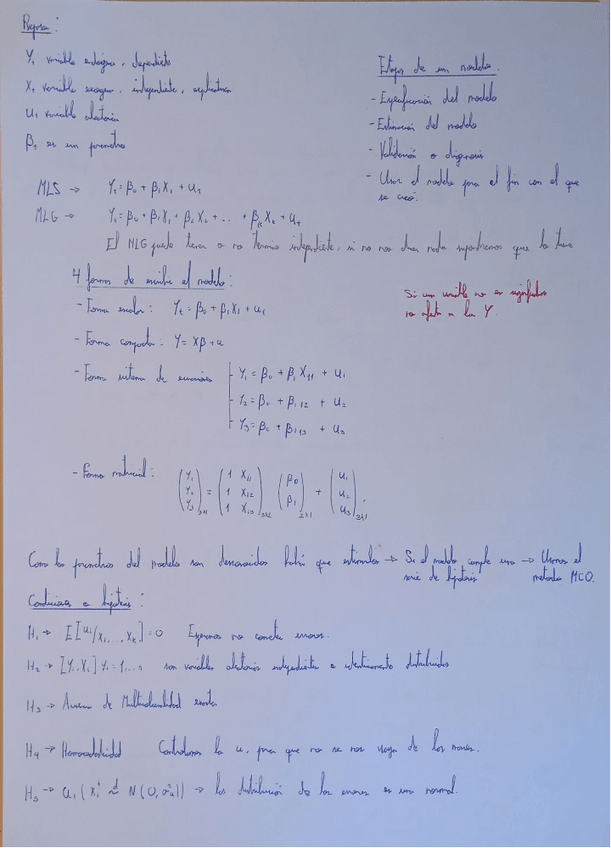 Repaso:
Yₜ variable endógena, dependiente
Xₜ variable exógena, independiente, explicativa
Uₜ variable aleatoria
βₜ es un parámetro
Etapas de un modelo.
- Especificación del modelo
- Estimación del modelo
- Validación o diagnosis
- Usar el modelo para el fin con el que
se creó.
MLS → Yₜ = β₀ + β₁X₁ + uₜ
MLG → Yₜ = β₀ + β₁X₁ + β₂X₂ + ... + βₖXₖ + uₜ
El MLG puede tener o no termino independiente, si no nos dicen nada supondremos que lo tiene
4 formas de escribir el modelo:
- Forma escalar: Yₜ = β₀ + β₁X₁ + uₜ
Si una variable no es significativa
no afecta a la Y.
- Forma compacta: Y = Xβ + u
- Forma sistema de ecuaciones
Y₁ = β₀ + β₁X₁₁ + u₁
Y₂ = β₀ + β₁₁₂ + u₂
Y₃ = β₀ + β₁₁₃ + u₃
- Forma matricial:
(Y₁ Y₂ Y₃)₃ₓ₁ = (1 X₁₁ 1 X₁₂ 1 X₁₃)₃ₓ₂ (β₀ β₁)₂ₓ₁ + (u₁ u₂ u₃)₃ₓ₁
Como los parámetros del modelo son desconocidos habrá que estimarlos → Si el modelo cumple una → Usamos el
serie de hipótesis método MCO.
Condiciones o hipótesis:
H₁ → E[uᵢ/x₁,...,xₖ] = 0 Esperamos no cometer errores.
H₂ → [Yᵢ,Xᵢ] ∀i=1,...n son variables aleatorias independientes e idénticamente distribuidas
H₃ → Ausencia de Multicolinealidad exacta
H₄ → Homocedasticidad Controlamos la u, para que no se nos vaya de las manos.
H₅ → uᵢ (Xᵢ ~ N(0,σ²ᵤ)) → la distribución de los errores es una normal.